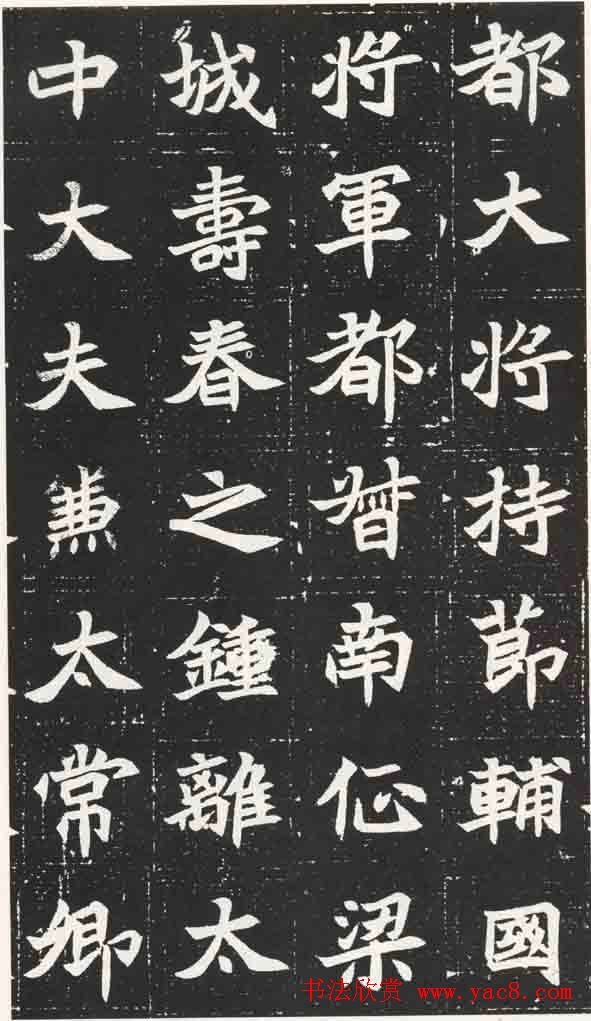 都大将持莭輔國
将軍都督南征梁
城壽春之鍾離太
中大夫兼太常卿
书法欣赏 www.yac8.com